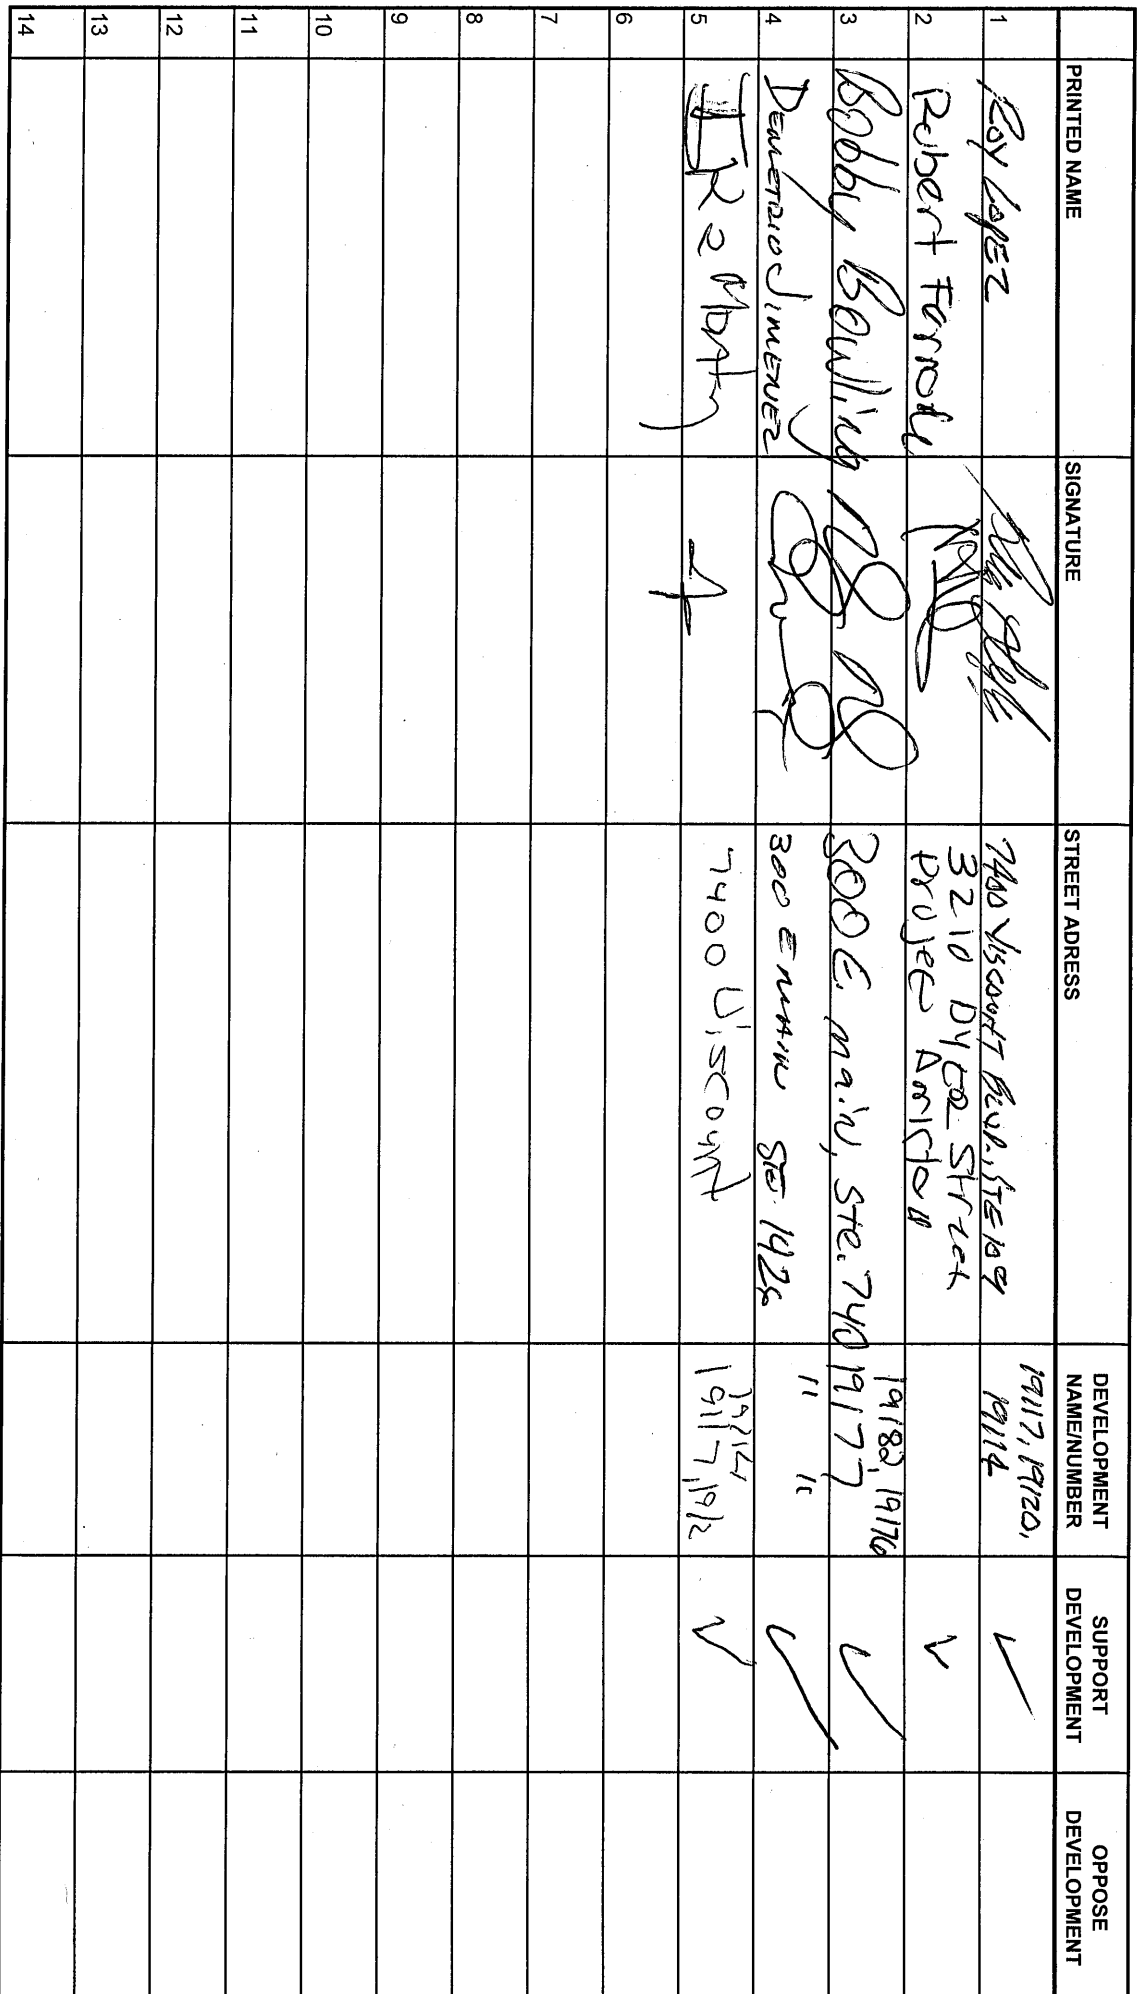 PRINTED NAME SIGNATURE STREET ADRESS DEVELOPMENT NAME/NUMBER SUPPORT DEVELOPMENT OPPOSE DEVELOPMENT
1 Roy Lopez 7400 Viscount Blvd., STE 109 19117, 19120, 19114 ✓
2 Robert 3210 Dyer Street Project ✓
3 Bobby Bowling 300 E. main, Ste. 740 19182, 19176 19177 ✓
4 Demetrio Jimenez 300 E MAIN STE. " " ✓
5 7400 Viscount 19117, ✓
6
7
8
9
10
11
12
13
14